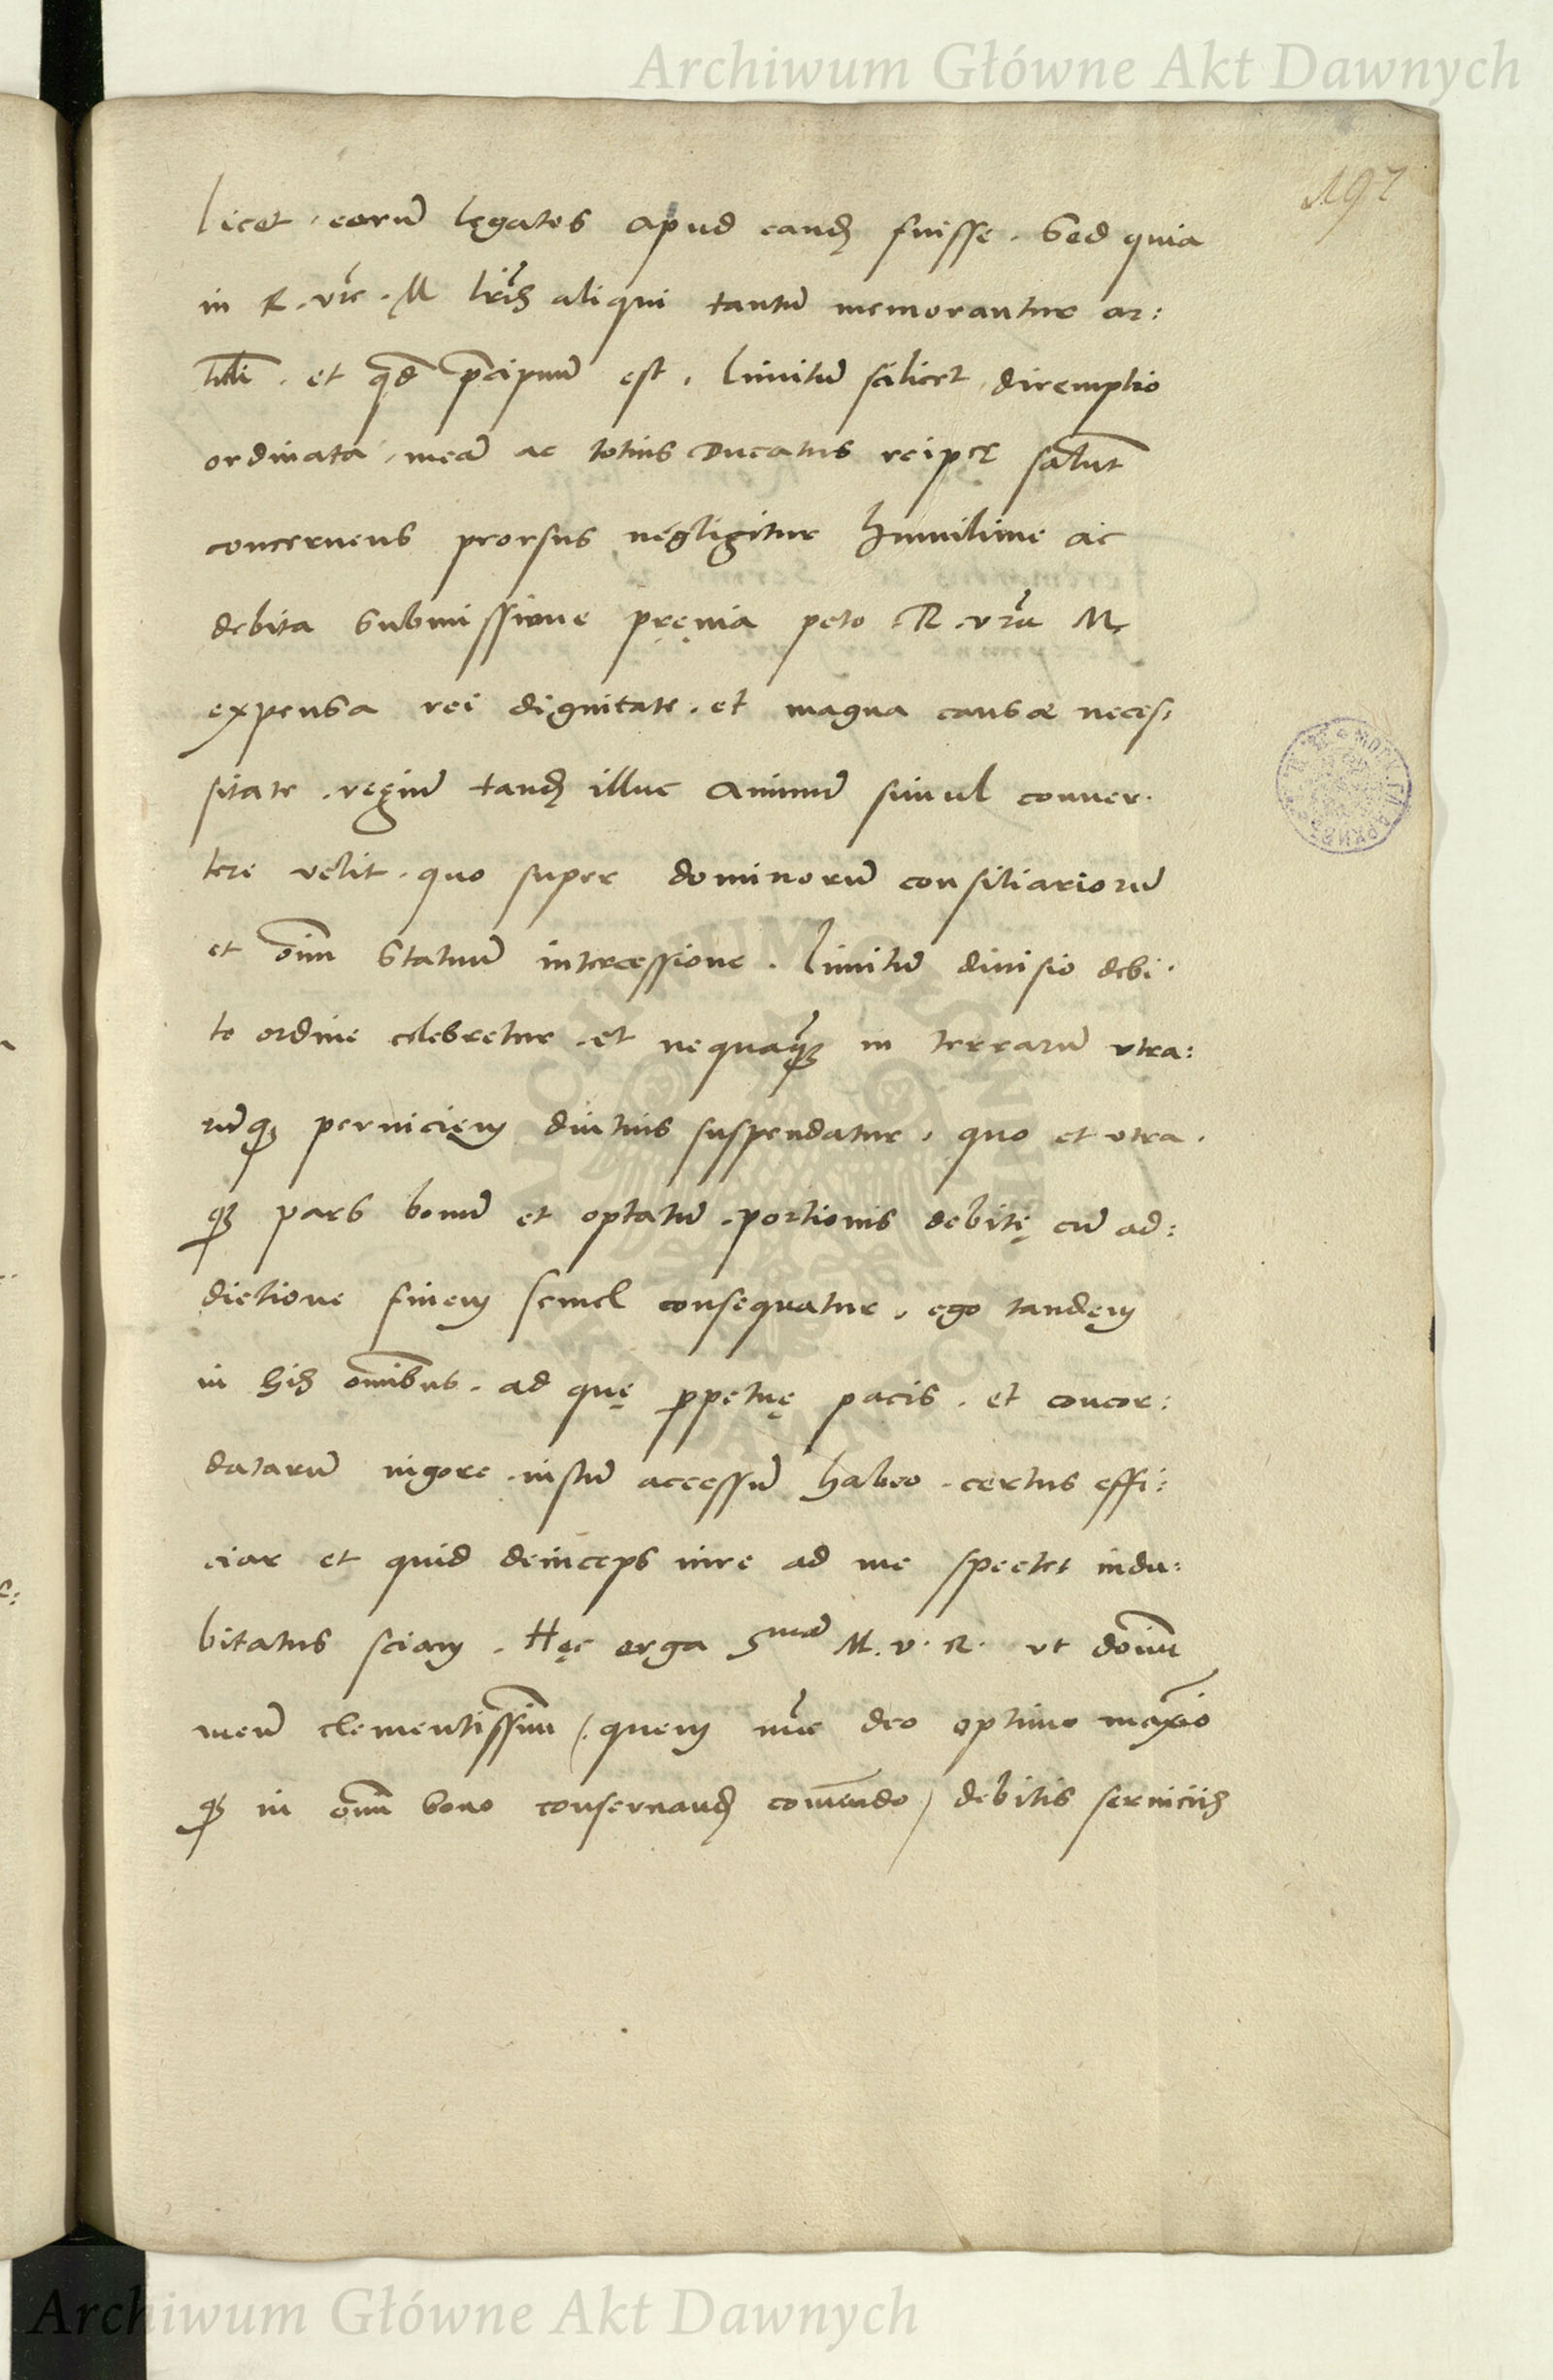 Archiwum Główne Akt Dawnych
197
licet, eorū lęgatos apud eandꝫ fuisse. Sed quia
in R. vr̄e. M lr̄is aliqui tantū memorantur ar:
tic̄li. et qd̄ p̄cipuū est, limitū scilicet diremptio
ordinata, meā ac totius Ducatus reip salut̄
concernens prorsus negligitur humilime ac
debita submissione pręuia peto R. vr̄a M
expensa rei dignitate. et magna causæ neces:
sitate. regiū tandꝫ illuc animū simul conuer.
tere velit. quo super dominorū consiliariorū
et oīm statuū intercessione. limitū diuisio debi.
to ordine celebretur. et nequaq̄ꝫ in terrarū utra:
rūqꝫ perniciem diutius suspendatur, quo et utra.
qꝫ pars bonū et optatū. portionis debitę cū ad:
dictione finem semel consequatur, ego tandem
in his om̄ibus. ad quę ꝑpetuę pacis. et concor:
datarū uigore. iustū accessū habeo. certus effi:
ciar et quid deinceps iure ad me spectet indu:
bitatus sciam. Hęc erga Smā M. v. R. ut doīm
meū clementissīm (quem nūc deo optimo maxīo
qꝫ in om̄i bono conseruandꝫ com̄endo) debitis seruiciis
Archiwum Główne Akt Dawnych